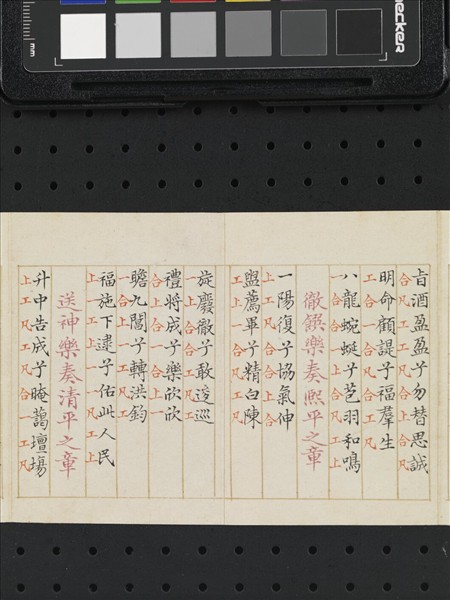 旨酒盈盈兮勿替思誠
合凡工工凡上合凡
明命顧諟兮福羣生
工合一合凡工凡
八龍蜿蜒兮苞羽和鳴
一上合凡一合工上
徹饌樂奏熙平之章
一陽復兮協氣伸
上工凡工上合
盥薦畢兮精白陳
工上一合凡工
旋廢徹兮敢逡巡
一上一工凡工
禮將成兮樂欣欣
合上凡合上一
瞻九閽兮轉洪鈞
一合上合工凡
福施下逮兮佑此人民
上一工凡凡一工上
送神樂奏清平之章
升中告成兮晻藹壇場
上工凡工凡合一工凡
mm